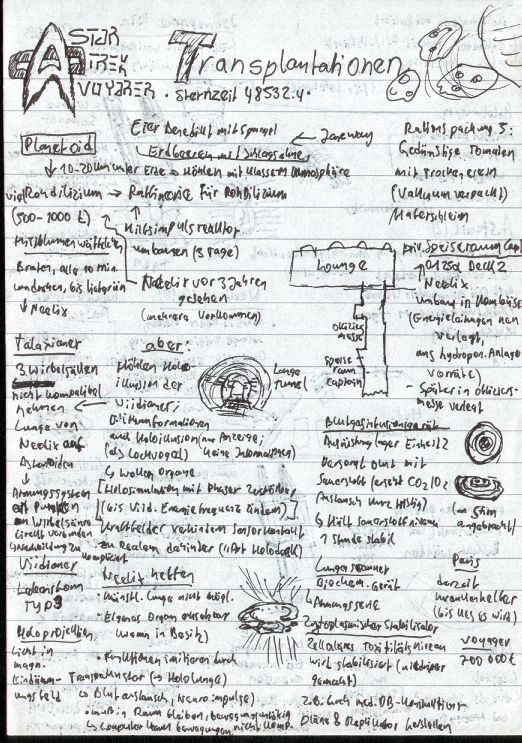 STAR
TREK
VOYAGER
Transplantationen
· Sternzeit 48532.4 ·
Planetoid
Eier Benedikt mit Spargel
Erdbeeren mit Schlagsahne
Janeway
10-20 km unter Erde → Höhlen mit Klasse M Atmosphäre
viel Rohdilizium → Raffinerie für Rohdilizium
(500-1000 t)
Hilfsimpulsreaktor
umbauen (2 Tage)
Braten, alle 10 min
umdrehen, bis
↓ Neelix
Neelix vor 3 Jahren
gesehen
(mehrere Vorkommen)
Rationspackung 5:
Gedünstete Tomaten
mit Trockeneiern
(Vakuum verpackt)
Haferschleim
priv. Speiseraum Capt.
0125α Deck 2
Neelix
Umbau in Kombüse
(Energieleitungen neu
verlegt,
aus hydropon. Anlage
Vorräte)
- Später in Offiziers-
messe verlegt
Lounge
Offiziers
messe
Speise
raum
Captain
Talaxianer
3 Wirbelsäulen
nicht kompatibel
nehmen
Lunge von
Neelix auf
Asteroiden
↓
Atmungssystem
mit Punkten
an Wirbelsäule
direkt verbunden
zu
kompliziert
aber:
Höhlen Holo-
illusion der
Vidiianer:
und Holoillusion
(als Lockvogel)
keine
↳ wollen Organe
Holosimulation mit Phaser
(bis Vid. Energiefrequenz ändern)
Kraftfelder verhindern Sensorkontakt
zu Realem dahinter (1 Art Holodeck)
Lange
Tunnel
Ausrüstung Lager Einheit 2
Versorgt Blut mit
Sauerstoff (ersetzt CO2/O2
Austausch kurzfristig)
↳ Hält Sauerstoffniveau
1 Stunde stabil
(an Stirn
angebracht)
Vidiianer
Lebensform
Typ 3
Neelix retten
- künstl. Lunge nicht mögl.
- Eigenes Organ
(wenn in Besitz)
Lungenscanner
Biochem. Gerät
Atmungsserie
Zytoplasmischer Stabilisator
Zelluläres Toxizitätsniveau
wird stabilisiert (niedriger
gemacht)
Paris
derzeit
Krankenhelfer
(bis Kes es wird)
Voyager
700 000 t
Holoprojektion
Licht in
magn.
Eindämm-
ungsfeld
- Funktionen imitieren durch
Transporter (→ Hololunge)
↳ Blutaustausch, Neuroimpulse)
- muß in Raum bleiben, bewegungsunfähig
↳ Computer kann Bewegungen nicht komp.
z.B. durch med. DB-Konstruktions-
pläne & Replikator herstellen